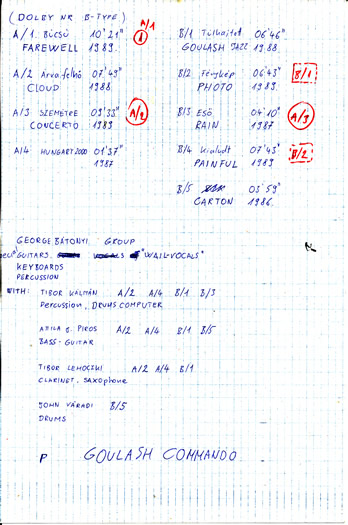 (DOLBY NR B-TYPE)
A/1. Búcsú 10'21" A/1 1
FAREWELL 1989.
A/2 Árva felhő 07'49"
CLOUD 1988.
A/3 SZEMÉTRE 09'33" A/2
CONCERTO 1989
A/4 HUNGART 2000 01'37"
1987
B/1 06'46"
GOULASH JAZZ 1988.
B/2 Fénykép 06'43" B/1
PHOTO 1989.
B/3 Eső 04'10" A/3
RAIN 1987
B/4 07'45" B/2
PAINFUL 1989
B/5 03'59"
CARTON 1986.
GEORGE BÁTONYI GROUP
GUITARS. "WAIL-VOCALS"
KEYBOARDS
PERCUSSION
WITH: TIBOR KÁLMÁN A/2 A/4 B/1 B/3
PERCUSSION, DRUMS COMPUTER
ATILA g. PIROS A/2 A/4 B/1 B/5
BASS-GUITAR
TIBOR LEMOCZKI A/2 A/4 B/1
CLARINET, SAXOPHONE
JOHN VÁRADI B/5
DRUMS
P GOULASH COMMANDO